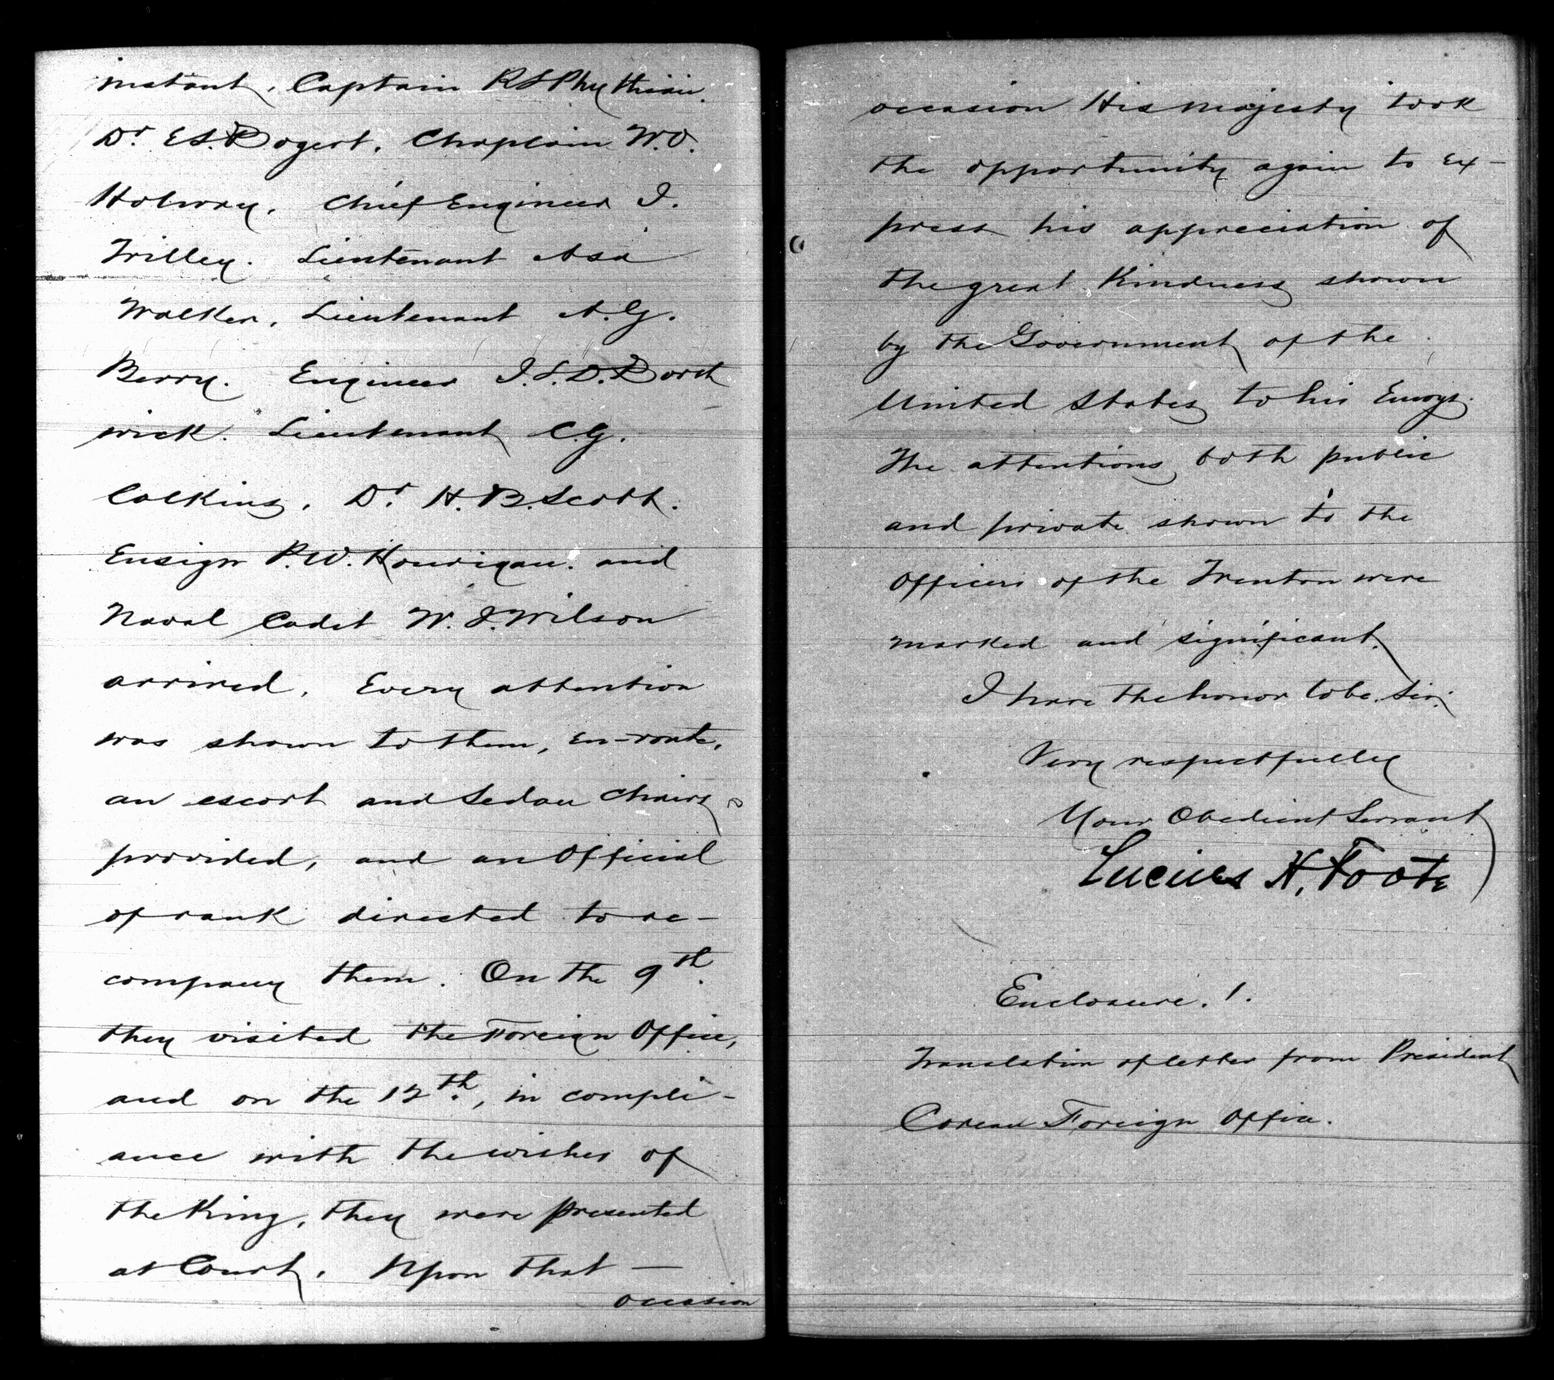 instant, Captain R L Phythian.
Dr E.S. Bogert, Chaplain W.O.
Holway, Chief Engineer J.
Trilley. Lieutenant Asa
Walker, Lieutenant A.G.
Berry. Engineer J.L.D. Borth
wick. Lieutenant C.G.
Calkins, Dr H.B. Scott.
Ensign P.W. Hourigan. and
Naval Cadet W.J. Wilson
arrived. Every attention
was shown to them, en-route,
an escort and Sedan Chairs
provided, and an Official
of rank directed to ac-
company them. On the 9th.
they visited the Foreign Office,
and on the 12th., in compli-
ance with the wishes of
the King, they were presented
at Court. Upon that —
occasion
occasion His Majesty took
the opportunity again to ex-
press his appreciation of
the great Kindness shown
by the Government of the
United States to his Envoys.
The attentions both public
and private shown to the
Officers of the Trenton were
marked and significant.
I have the honor to be, Sir,
Very respectfully
Your Obedient Servant
Lucius H. Foote
Enclosure. 1.
Translation of letter from President
Corean Foreign Office.